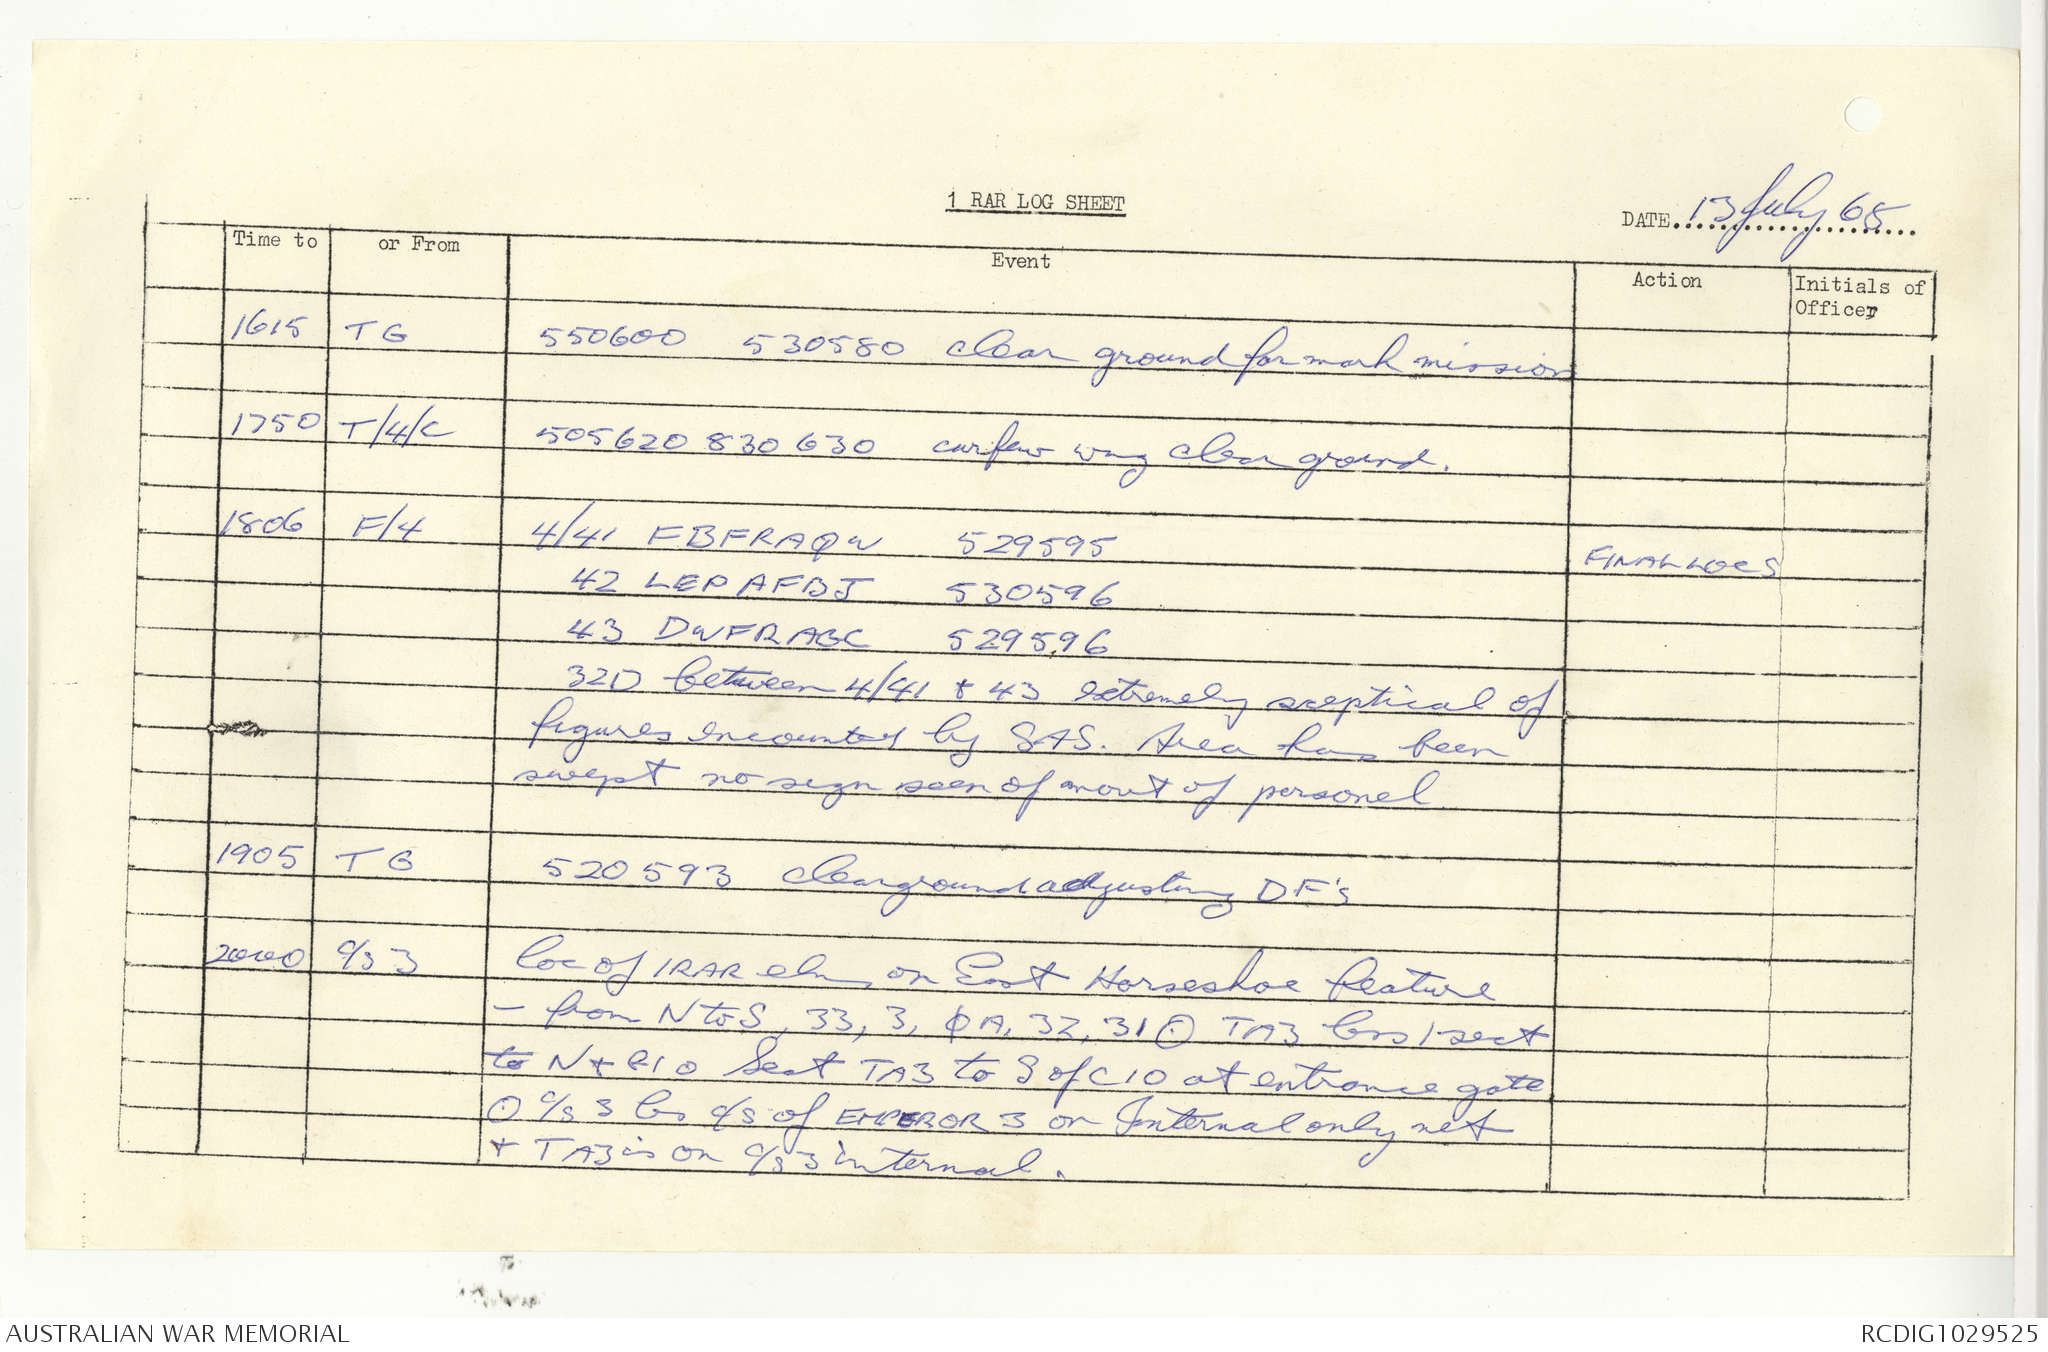 1 RAR LOG SHEET
DATE 13 July 68
Time to or From Event Action Initials of Officer
1615 T G 550600 530580 clear ground for mark mission
1750 T/4/C 505620 830630 curfew wng clear ground.
1806 F/4 4/41 FBFRAQW 529595 FINAL LOCS
42 LEPAFBJ 530596
43 DWFRAGC 529596
32D between 4/41 + 43 extremely sceptical of
figures encounted by SAS. Area has been
swept no sign seen of movt of personel
1905 T G 520593 clear ground adjusting DF's
2000 c/s 3 loc of 1RAR elms on East Horseshoe feature
- from N to S, 33, 3, ØA, 32, 31 TA3 less 1 sect
to N + 1 Sect TA3 to S of C10 at entrance gate
c/s 3 c/s of EMPEROR 3 on Internal only net
+ TA3 is on c/s 3 internal.
AUSTRALIAN WAR MEMORIAL
RCDIG1029525